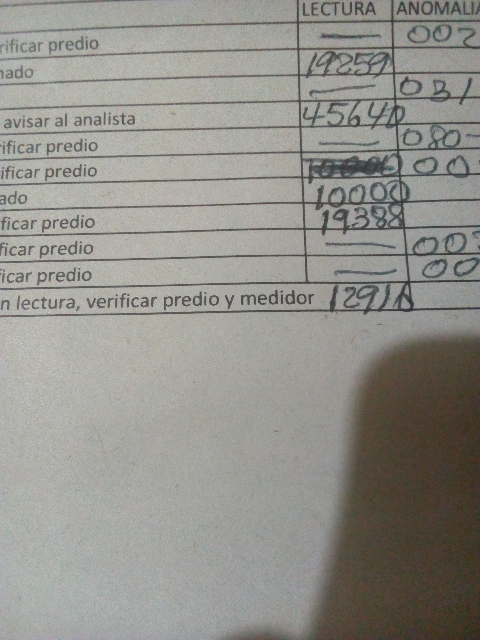 LECTURA ANOMALIA
rificar predio — 002
nado 19259
— 031
avisar al analista 45640
rificar predio — 080-
ificar predio 00
ado 10000
ificar predio 19388
ficar predio — 00
ficar predio — 00
n lectura, verificar predio y medidor